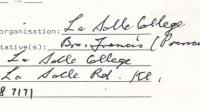 organisation: La Salle College
tative(s): Bro. Francis (
La Salle College
La Salle Rd. Kl.
8 7171